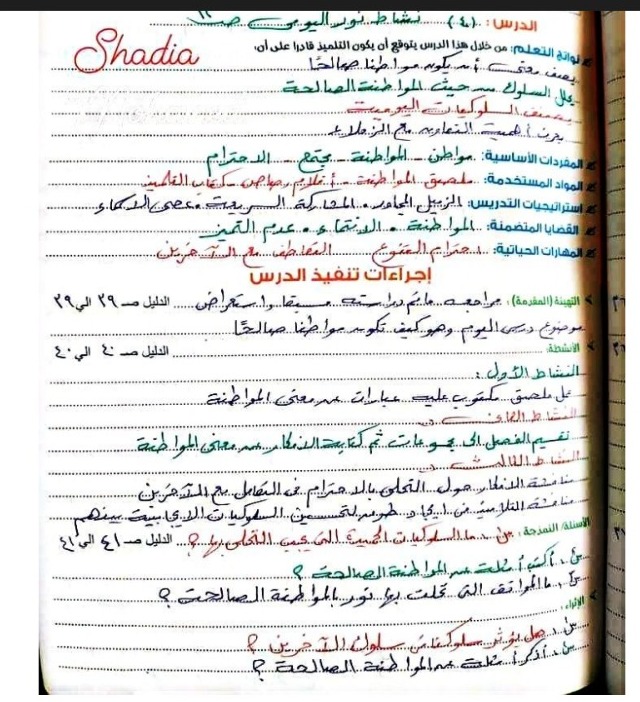 الدرس: (٤٠) نشاط نور اليومى صـ ١٦
Shadia
نواتج التعلم: من خلال هذا الدرس يتوقع أن يكون التلميذ قادرا على أن:
يصف معنى أن يكون مواطنا صالحًا
يعلل السلوك من حيث المواطنة الصالحة
يصنف السلوكيات اليومية
يعرف أهمية التعاون مع الزملاء
المفردات الأساسية: مواطن - المواطنة - مجتمع - الاحترام
المواد المستخدمة: ملصق المواطنة - أقلام رصاص - كتاب التلميذ
استراتيجيات التدريس: الزميل المجاور. المشاركة السريعة. عصى الأسماء
القضايا المتضمنة: المواطنة. الانتماء. عدم التمييز
المهارات الحياتية: احترام التنوع التعاطف مع الآخرين
إجراءات تنفيذ الدرس
التهيئة (المقدمة): مراجعه ما تم دراسته مسبقا واستعراض الدليل صـ ٣٩ الي ٣٩
موضوع درس اليوم وهو كيف تكون مواطنا صالحًا
الأنشطة: الدليل صـ ٤٠ الي ٤٠
النشاط الأول:
عمل ملصق مكتوب عليه عبارات عن معنى المواطنة
النشاط الثانى
تقسيم الفصل الى مجموعات ثم كتابة الافكار عن معنى المواطنة
النشاط الثالث
مناقشة الافكار حول التحلى بالاحترام فى التعامل مع الآخرين
مناقشة التلاميذ فى ايجاد طرق لتحسين السلوكيات الايجابية بينهم
الأسئلة/ النمذجة: س١. ما السلوكيات الحميدة التى يجب التحلى بها؟ الدليل صـ ٤١ الي ٤١
س٢. أكتب أمثلة عن المواطنة الصالحة؟
س٣. ما المواقف التى تحلت بها نور بالمواطنة الصالحة؟
الإثراء:
س١. هل يؤثر سلوكنا فى سلوك الآخرين؟
س٢. أذكر أمثلة عن المواطنة الصالحة؟